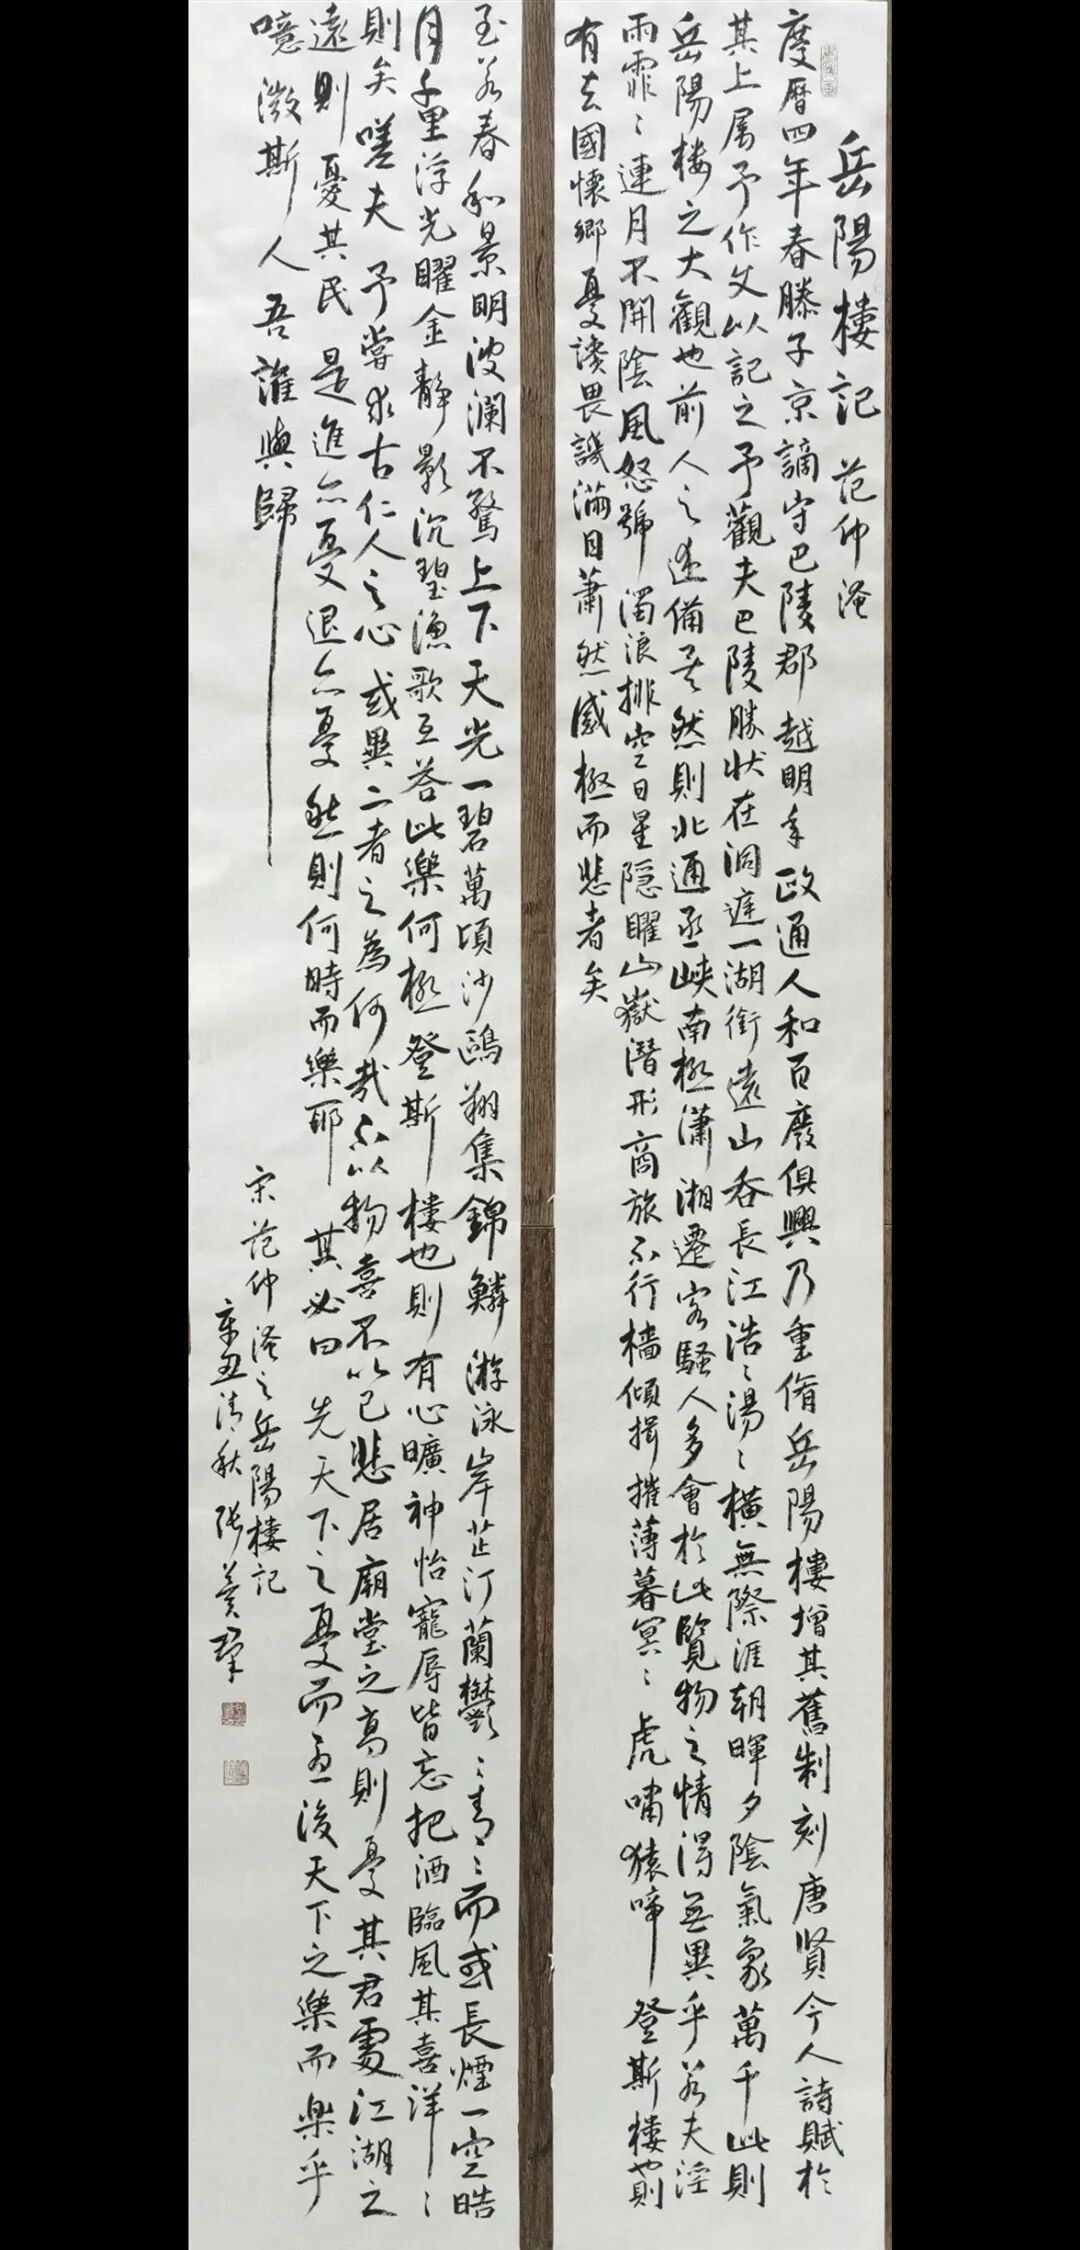 岳陽樓記 范仲淹
慶曆四年春滕子京謫守巴陵郡越明年政通人和百廢俱興乃重脩岳陽樓增其舊制刻唐賢今人詩賦於
其上属予作文以記之予觀夫巴陵勝狀在洞庭一湖銜遠山吞長江浩〻湯〻橫無際涯朝暉夕陰氣象萬千此則
岳陽樓之大觀也前人之述備矣然則北通巫峽南極瀟湘遷客騷人多會於此覽物之情得無異乎若夫淫
雨霏〻連月不開陰風怒號濁浪排空日星隱曜山嶽潛形商旅不行檣傾楫摧薄暮冥〻虎嘯猿啼登斯樓也則
有去國懷鄉憂讒畏譏滿目蕭然感極而悲者矣
至若春和景明波瀾不驚上下天光一碧萬頃沙鷗翔集錦鱗游泳岸芷汀蘭鬱〻青〻而或長煙一空皓
月千里浮光躍金靜影沉璧漁歌互答此樂何極登斯樓也則有心曠神怡寵辱皆忘把酒臨風其喜洋〻
則矣嗟夫予嘗求古仁人之心或異二者之為何哉不以物喜不以己悲居廟堂之高則憂其君處江湖之
遠則憂其民是進亦憂退亦憂然則何時而樂耶其必曰先天下之憂而憂後天下之樂而樂乎
噫微斯人吾誰與歸
宋范仲淹之岳陽樓記
辛丑清秋張